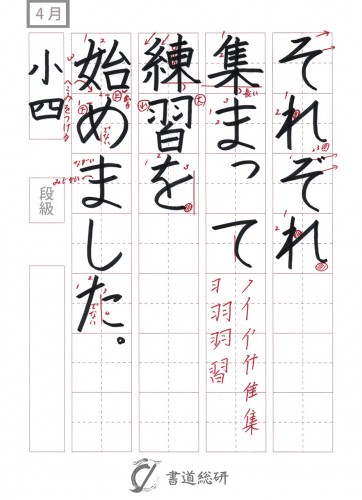 4月
それぞれ
集まって
ノ イ イ′ 什 隹 集
ヨ 羽 羽 習
練習を
始めました。
小四
段級
書道総研